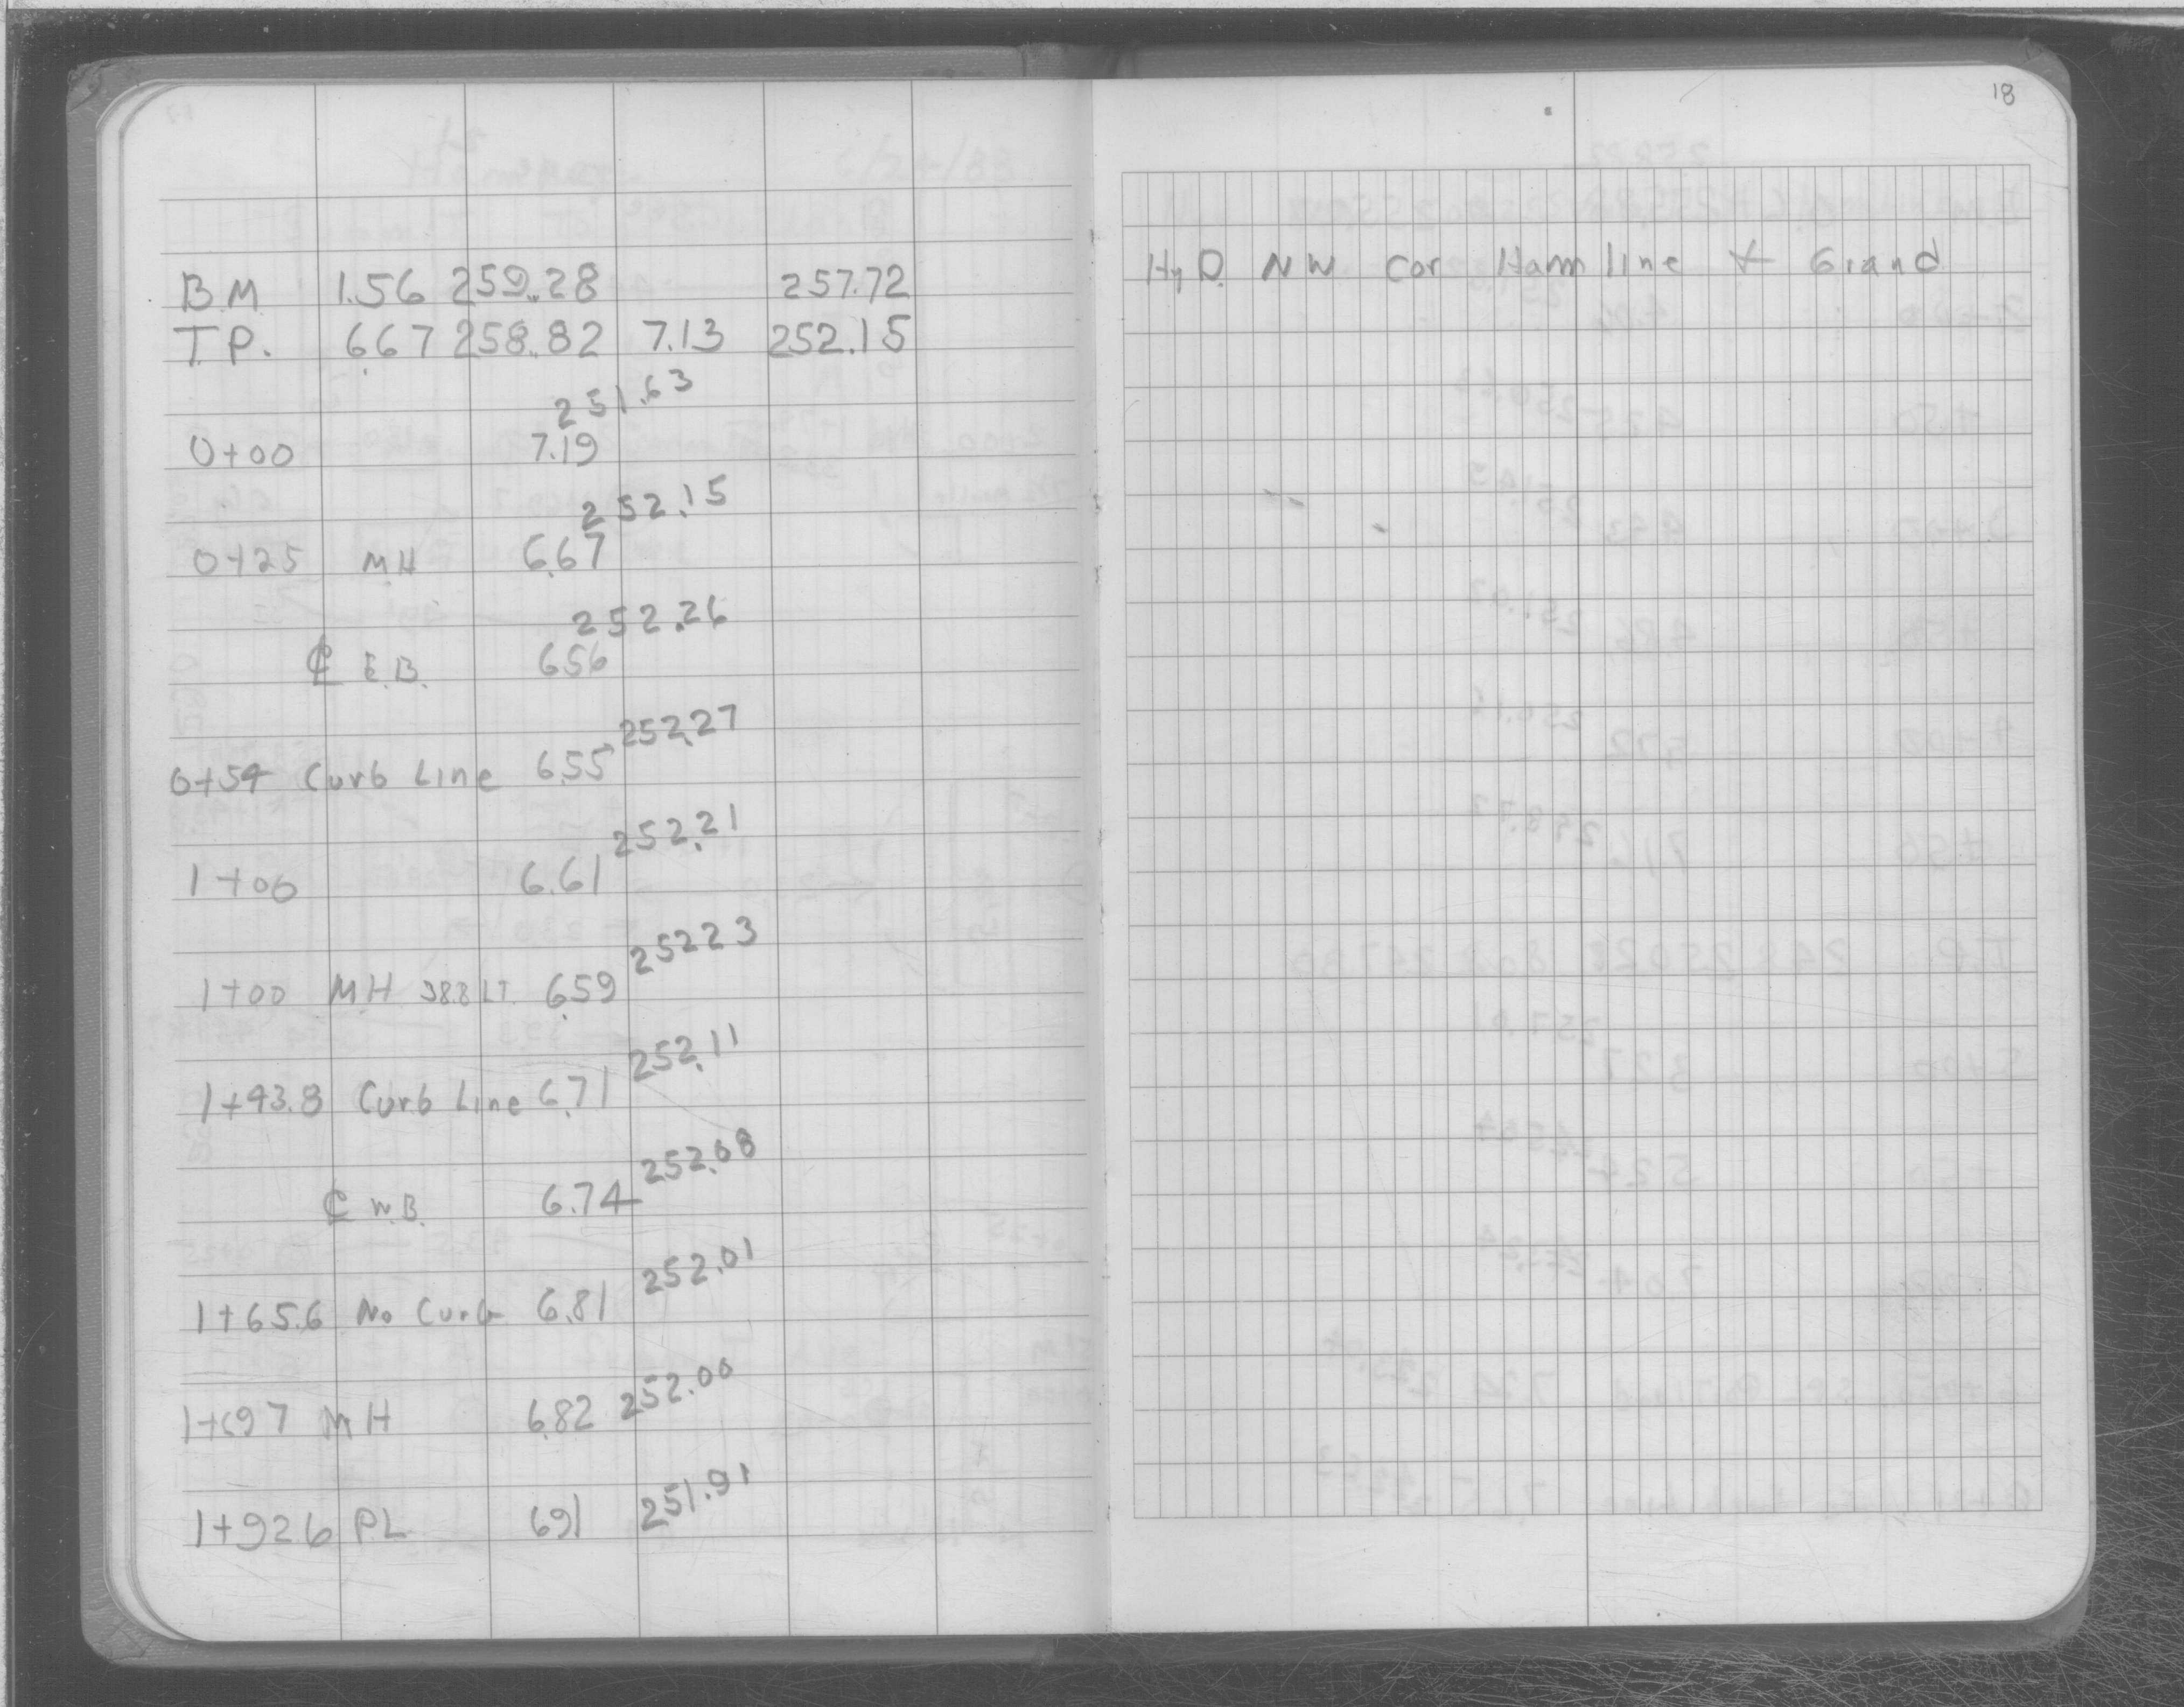 18
B.M. 1.56 259.28 257.72
Hyd. NW Cor Hamline & Grand
T.P. 6.67 258.82 7.13 252.15
251.63
0+00 7.19
252.15
0+25 MH 6.67
252.26
℄ E.B. 6.56
252.27
0+54 Curb Line 6.55
252.21
1+00 6.61
252.23
1+00 MH 38.8 LT. 6.59
252.11
1+43.8 Curb Line 6.71
252.08
℄ W.B. 6.74
252.01
1+65.6 No Curb 6.81
252.00
1+69.7 MH 6.82
251.91
1+92.6 PL 6.91